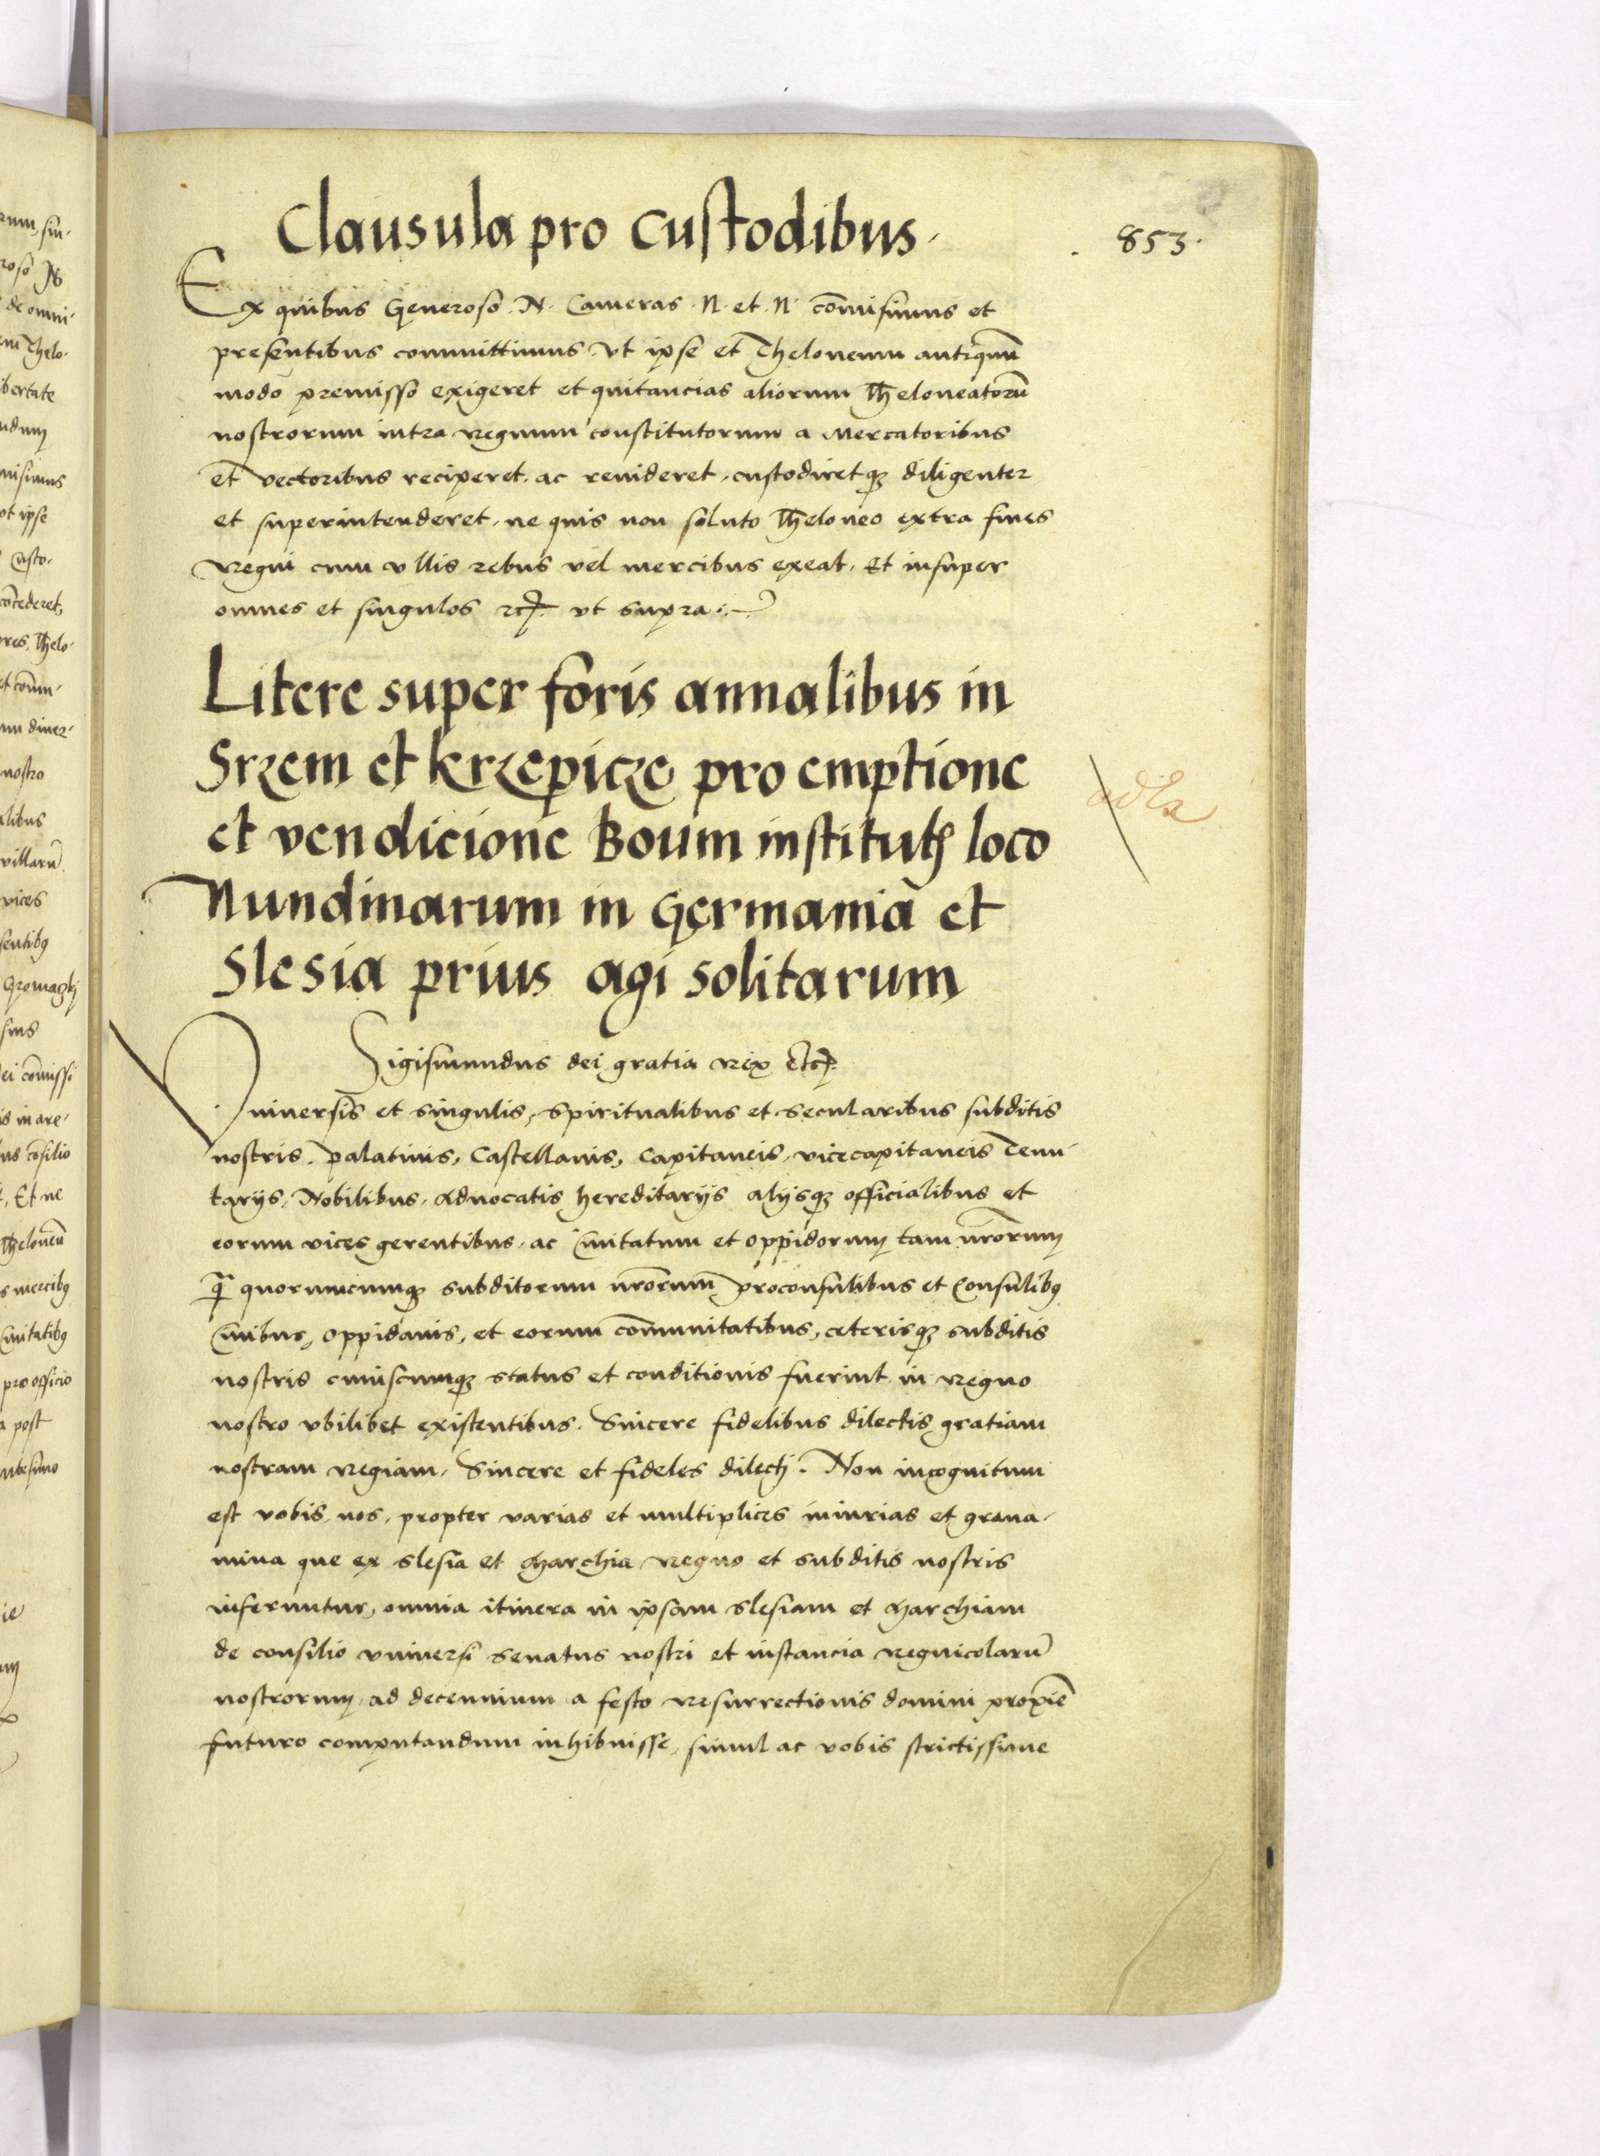 Clausula pro custodibus.
853.
Ex quibus Generoso N. Cameras N. et N. cõmisimus et
presentibus committimus vt ipse et Theloneum antiquũ
modo premisso exigeret et quitancias aliorum Theloneatorũ
nostrorum intra regnum constitutorum a Mercatoribus
et vectoribus reciperet, ac reuideret, custodiretqʒ diligenter
et superintenderet, ne quis non soluto Theloneo extra fines
regni cum vllis rebus vel mercibus exeat, Et insuper
omnes et singulos etc. vt supra.
Litere super foris annalibus in
Srzem et krzepicze pro emptione
et vendicione Boum institutis loco
Nundinarum in Germania et
Slesia prius agi solitarum
Sigismundus dei gratia rex etc.
Vniuersis et singulis, spiritualibus et secularibus subditis
nostris, palatinis, Castellanis, Capitaneis, vicecapitaneis Tenu-
tarijs, Nobilibus, Aduocatis hereditarijs alijsqʒ officialibus et
eorum vices gerentibus, ac Ciuitatum et oppidorum tam nrõrum
quã quorumcumqʒ subditorum nrõrum proconsulibus et Consulibꝯ
Ciuibus, oppidanis, et eorum cõmunitatibus, ceterisqʒ subditis
nostris cuiuscumqʒ status et conditionis fuerint in regno
nostro vbilibet existentibus. Sincere fidelibus dilectis gratiam
nostram regiam. Sincere et fideles dilecti. Non incognitum
est vobis, nos, propter varias et multiplices iniurias et graua-
mina que ex slesia et Marchia regno et subditis nostris
inferuntur, omnia itinera in ipsam slesiam et Marchiam
de consilio vniuersi senatus nostri et instancia regnicolarũ
nostrorum ad decennium a festo resurrectionis domini proxiẽ
futuro computandum inhibuisse, simul ac vobis strictissime